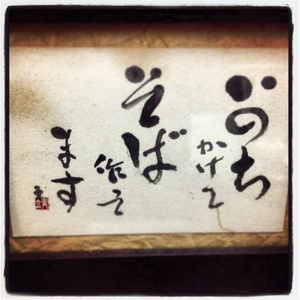 いのち
かけて
そば
作って
ます